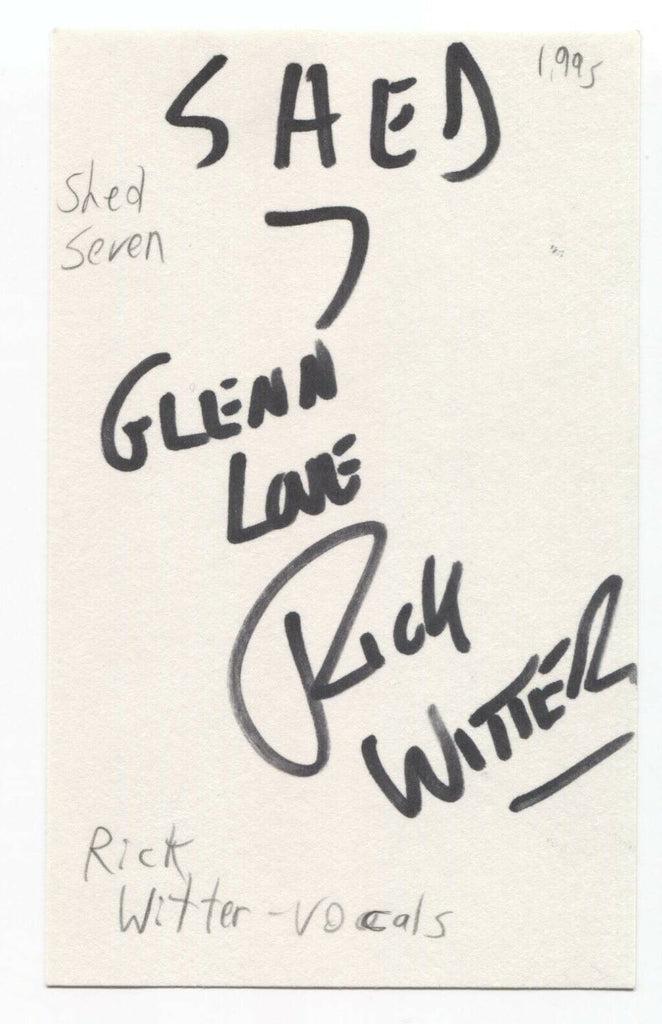 SHED
1,995
Shed
Seven
7
GLENN
LOVE
RICK
WITTER
Rick
Witter - Vocals